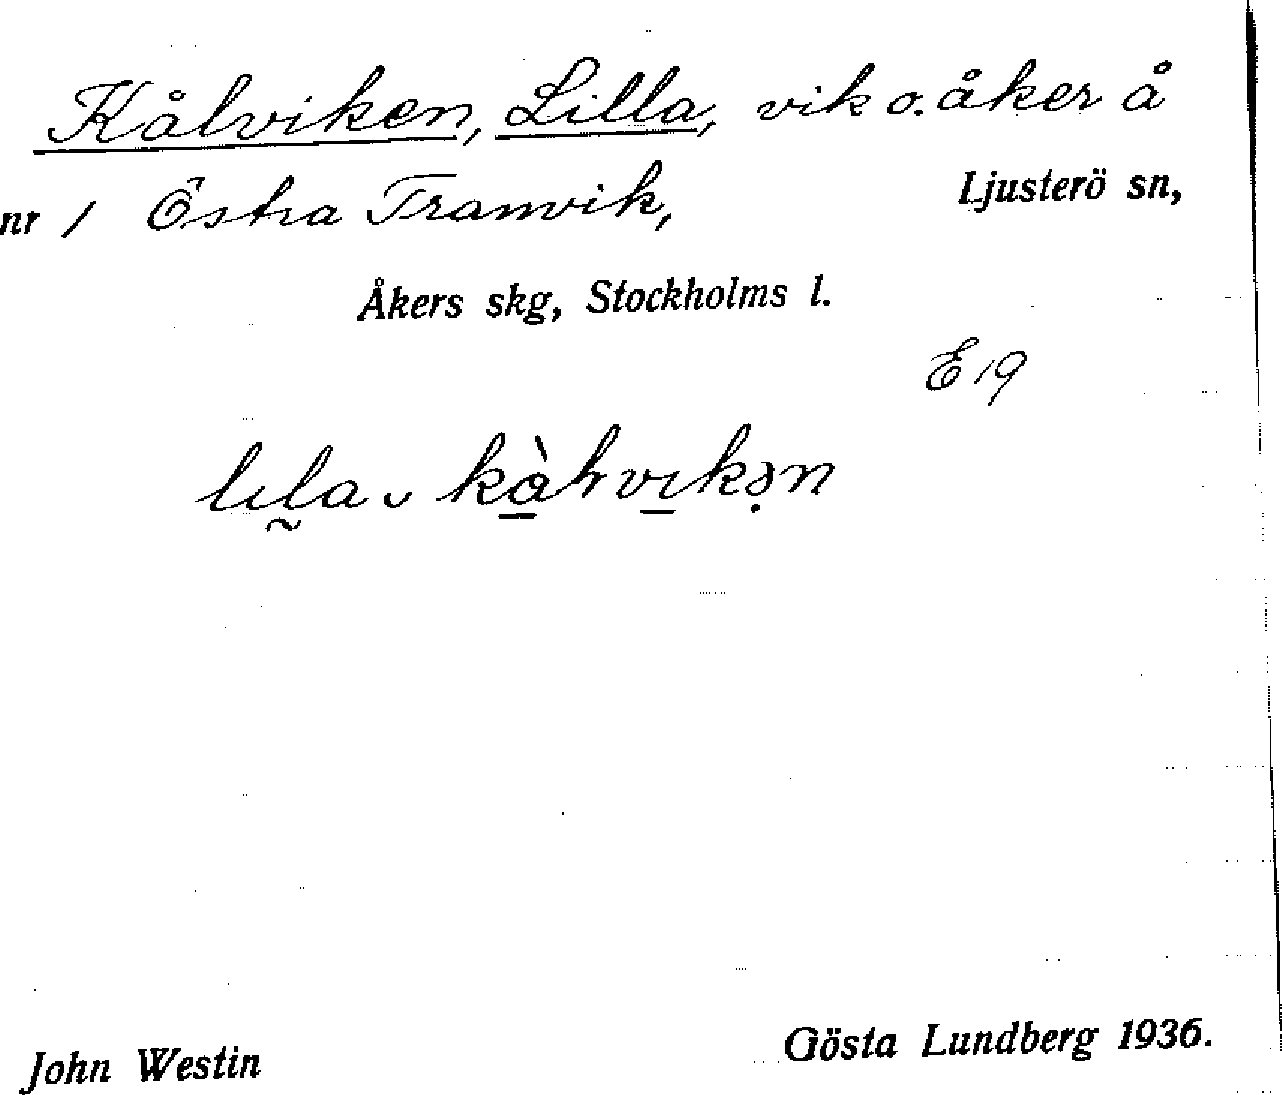 Kålviken, Lilla, vik o. åker å
nr 1 Östra Tranvik, Ljusterö sn,
Åkers skg, Stockholms l.
E 19
John Westin Gösta Lundberg 1936.